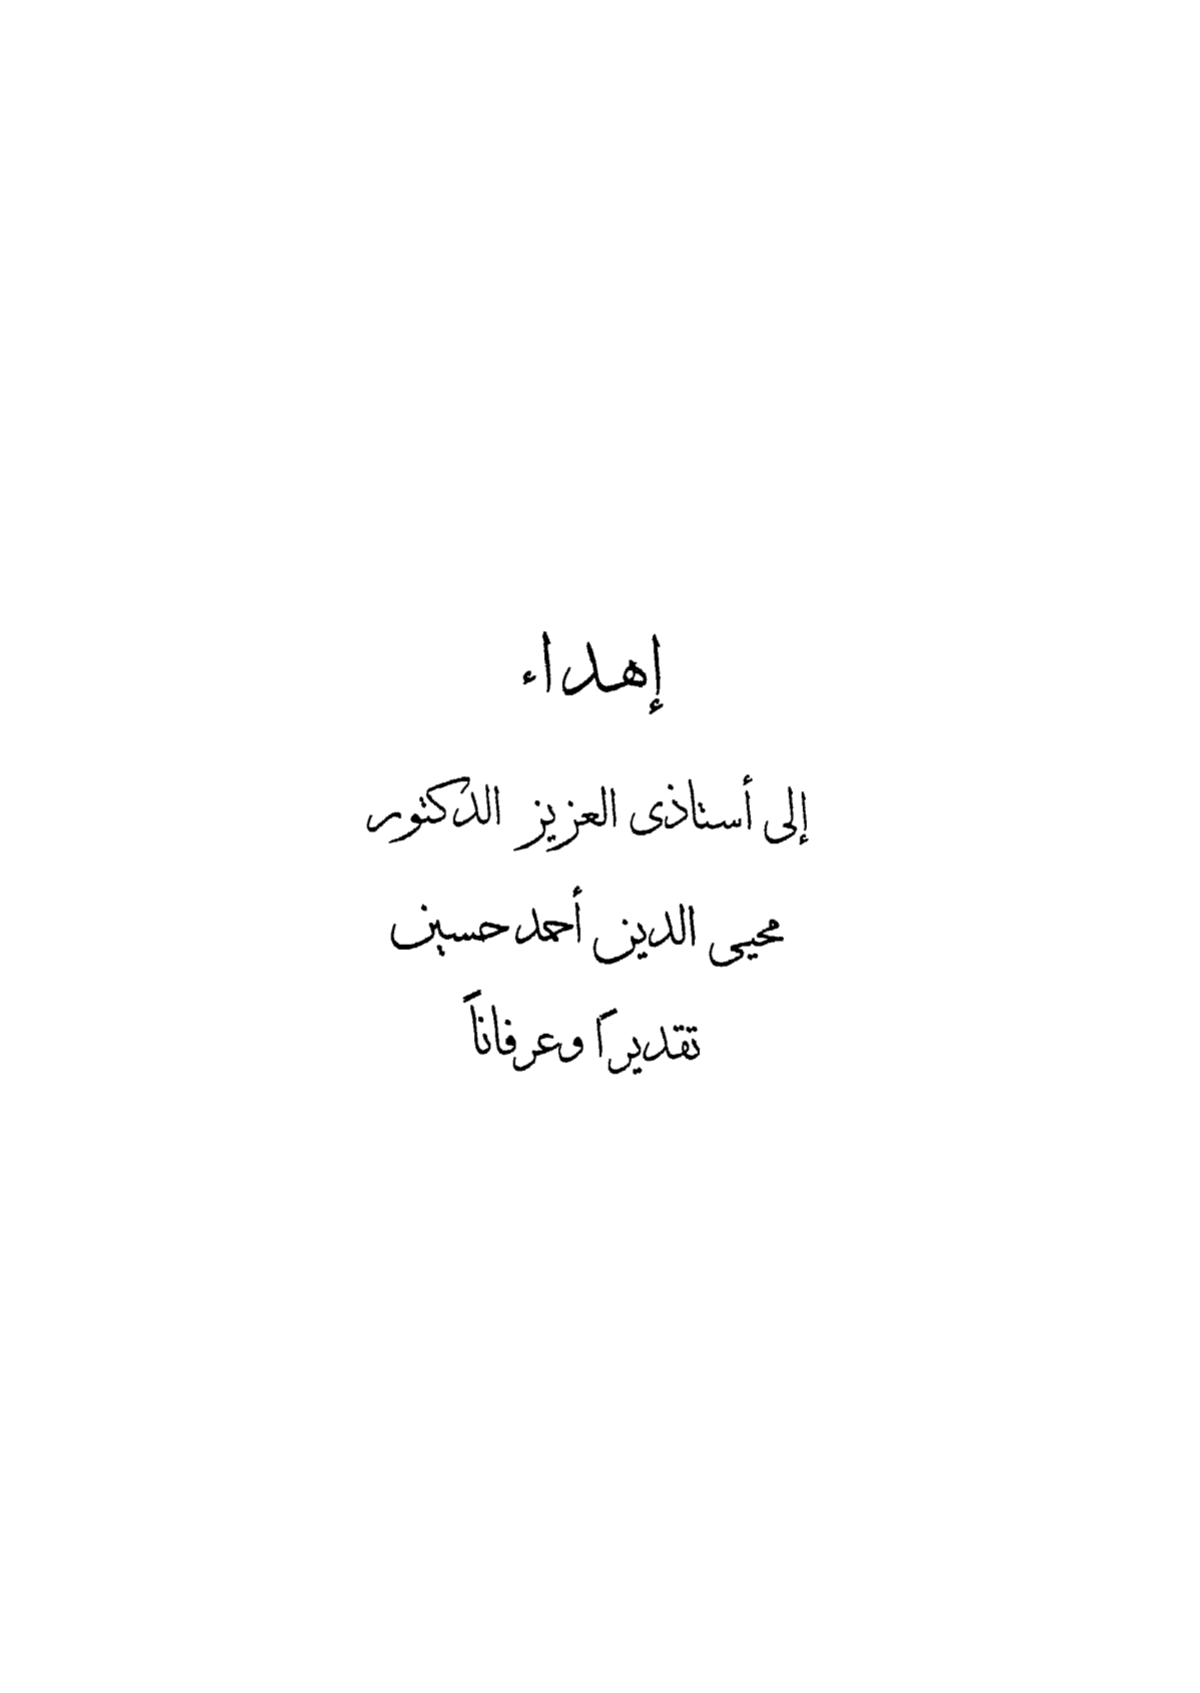 إهداء
إلى أستاذى العزيز الدكتور
محيى الدين أحمد حسين
تقديراً وعرفاناً